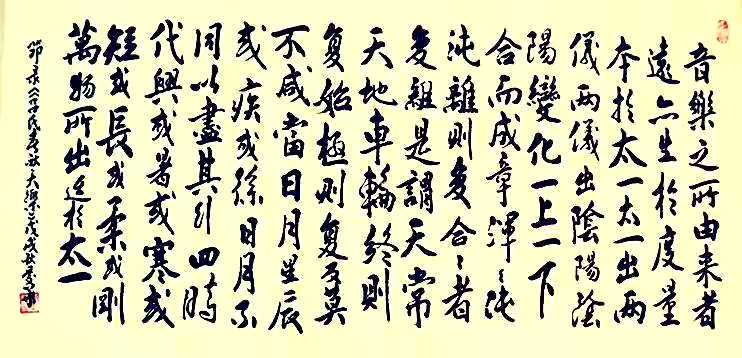 音樂之所由来者
遠生於度量
本於太一太一出兩
儀兩儀出陰陽陰
陽變化一上一下
合而成章渾〻沌
沌離則复合〻者
复離是謂天常
天地車輪終則
复始極則复反莫
不咸當日月星辰
或疾或徐日月不
同以盡其行四時
代興或暑或寒或
短或長或柔或剛
萬物所出造於太一
節录《吕氏春秋大樂》戊戌秋